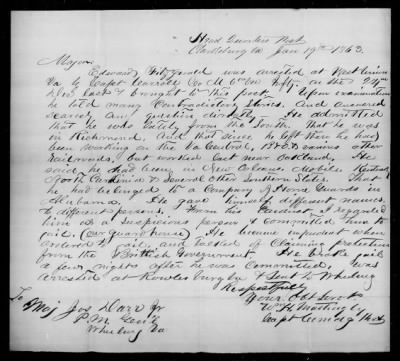 Head Quarters Post
Clarksburg Va Jan 19th 1863.
Major.
Edward Fitzgerald was arrested at West Union
Va by Capt Carroll Co M Va Infty. on the 24th
Decr last & brought to this post. Upon examination
he told many Contradictory Stories. And answered
scarcely any question directly. He admitted
that he was lately from the South. That he was
in Richmond. And that since he left there he had
been working on the Va Central, B&O & various other
Railroads, but worked last near Oakland. He
said he had been in New Orleans, Mobile,
North Carolina & Several Other Southern States. That
he had belonged to a Company of Home Guards in
Alabama. He gave himself different names
to different persons. From his Conduct I regarded
him as a Suspicious person & Committed him to
jail (our guard house). He became impudent when
ordered to jail, and talked of Claiming protection
from the British Government. He broke jail
a few nights after he was Committed, was
arrested at Rowlesburg Va & Sent to Wheeling
Respectfully
Your Obt Servt
To W H Mattingly
Maj Jos Darr Jr Capt Comdg Post
P. M. Genl
Wheeling Va